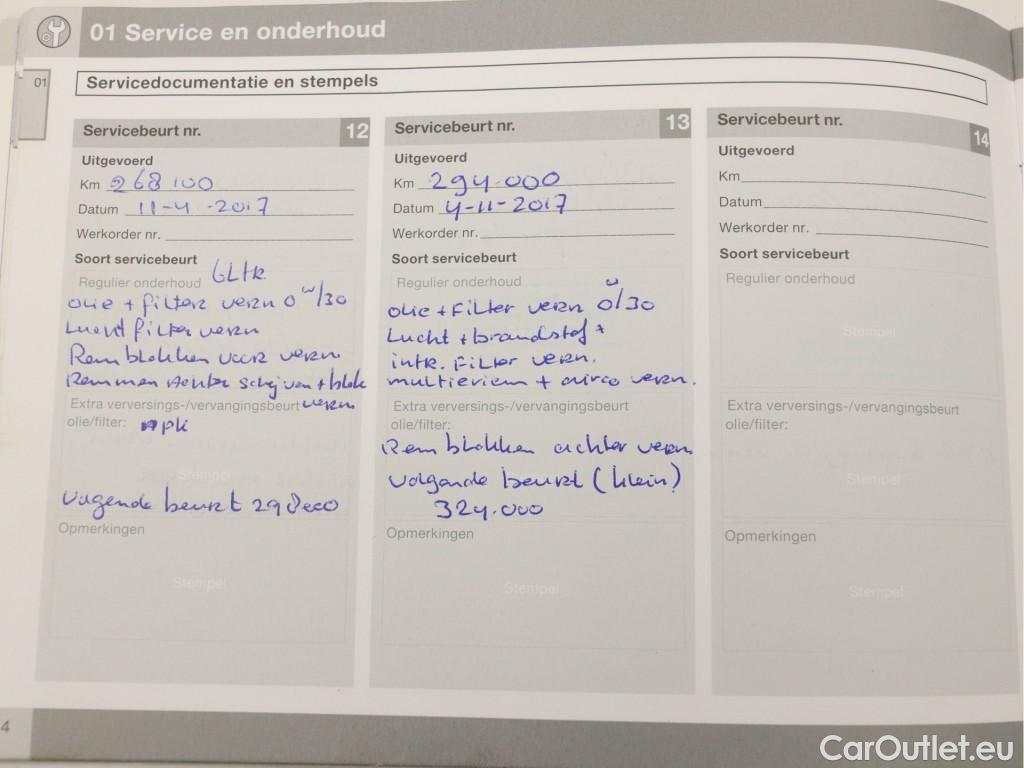 01 Service en onderhoud
01
Servicedocumentatie en stempels
Servicebeurt nr. 12
Uitgevoerd
Km 268100
Datum 11-4-2017
Werkorder nr.
Soort servicebeurt
Regulier onderhoud 6Ltr
olie + filter vern 0w/30
Lucht filter vern
Remblokken voor vern
Remmen achter schijven + blok
vern
Extra verversings-/vervangingsbeurt
olie/filter: apk
Stempel
volgende beurt 298000
Opmerkingen
Stempel
Servicebeurt nr. 13
Uitgevoerd
Km 294.000
Datum 4-11-2017
Werkorder nr.
Soort servicebeurt
Regulier onderhoud
olie + Filter vern 0w/30
Lucht + brandstof +
intr. Filter vern.
multieriem + airco vern.
Extra verversings-/vervangingsbeurt
olie/filter:
Remblokken achter vern
volgande beurt (klein)
324.000
Opmerkingen
Stempel
Servicebeurt nr. 14
Uitgevoerd
Km
Datum
Werkorder nr.
Soort servicebeurt
Regulier onderhoud
Stempel
Extra verversings-/vervangingsbeurt
olie/filter:
Stempel
Opmerkingen
Stempel
4
CarOutlet.eu